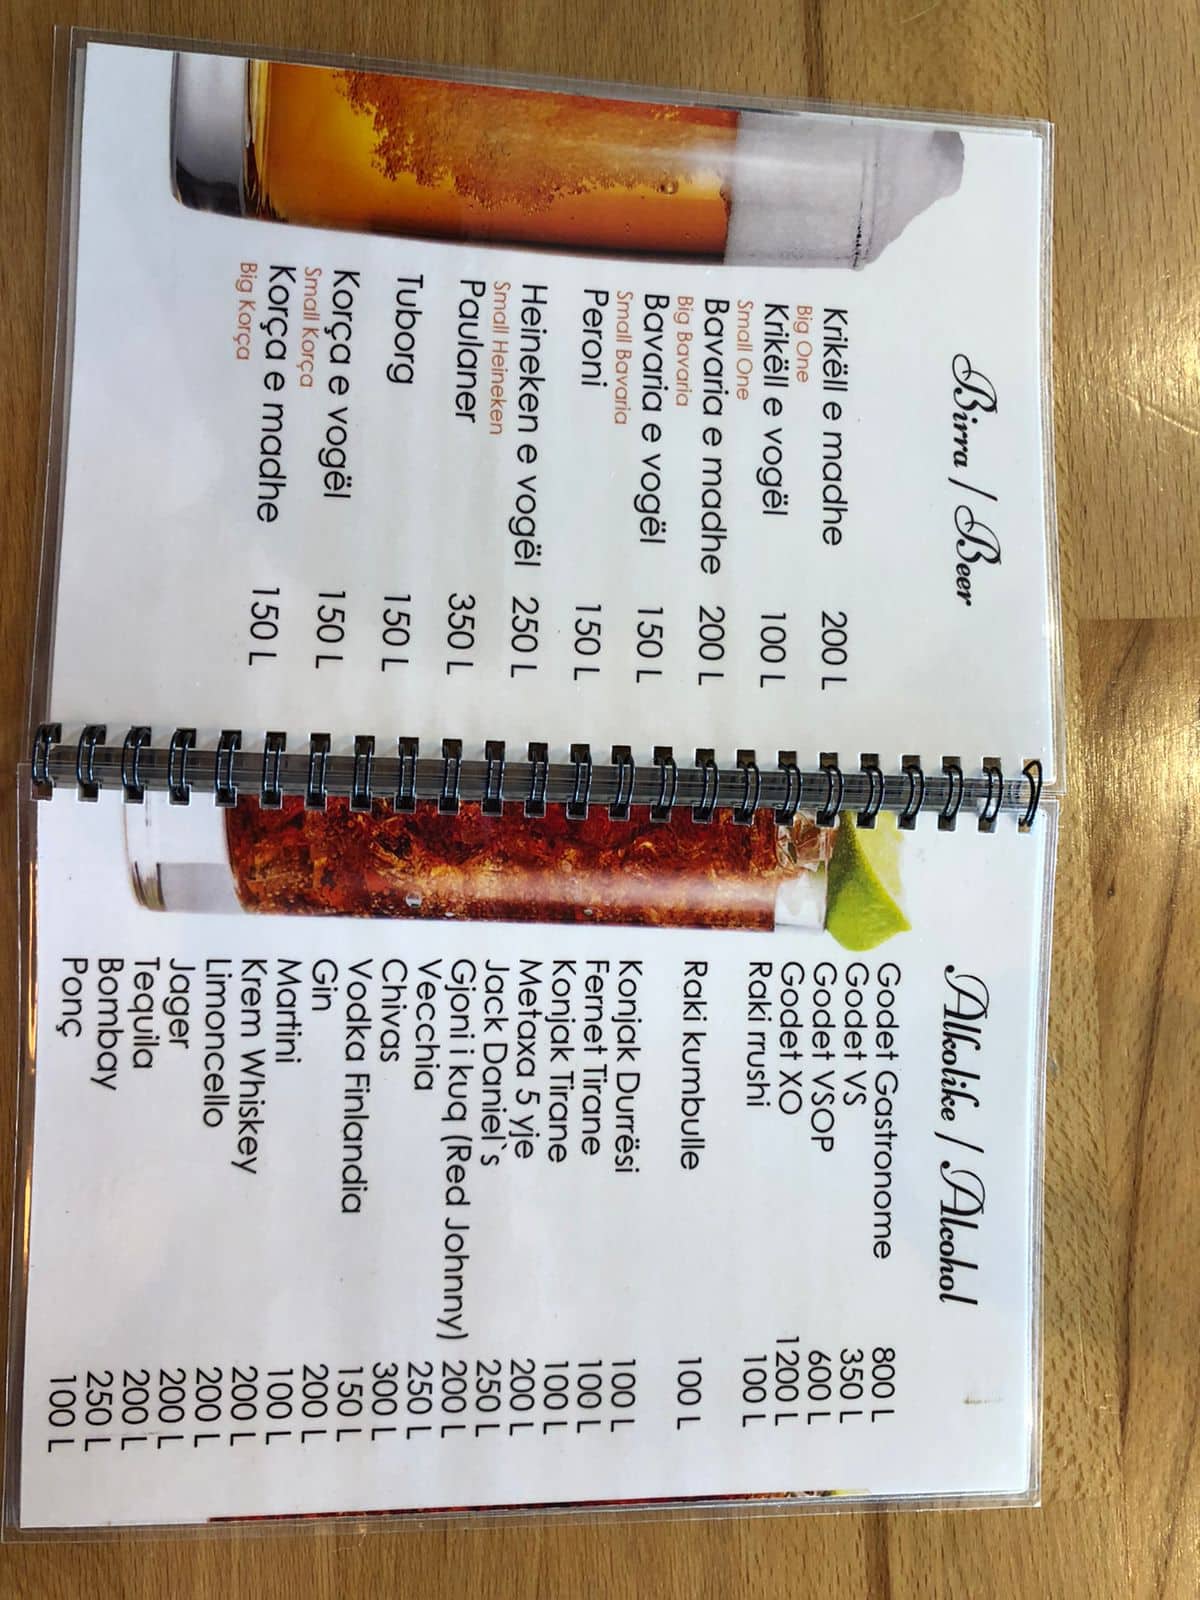 Birra / Beer
Krikëll e madhe 200 L
Big One
Krikëll e vogël 100 L
Small One
Bavaria e madhe 200 L
Big Bavaria
Bavaria e vogël 150 L
Small Bavaria
Peroni 150 L
Heineken e vogël 250 L
Small Heineken
Paulaner 350 L
Tuborg 150 L
Korça e vogël 150 L
Small Korça
Korça e madhe 150 L
Big Korça
Alkolike / Alcohol
Godet Gastronome 800 L
Godet VS 350 L
Godet VSOP 600 L
Godet XO 1200 L
Raki rrushi 100 L
Raki kumbulle 100 L
Konjak Durrësi 100 L
Fernet Tirane 100 L
Konjak Tirane 100 L
Metaxa 5 yje 200 L
Jack Daniel`s 250 L
Gjoni i kuq (Red Johnny) 200 L
Vecchia 250 L
Chivas 300 L
Vodka Finlandia 150 L
Gin 200 L
Martini 100 L
Krem Whiskey 200 L
Limoncello 200 L
Jager 200 L
Tequila 200 L
Bombay 250 L
Ponç 100 L